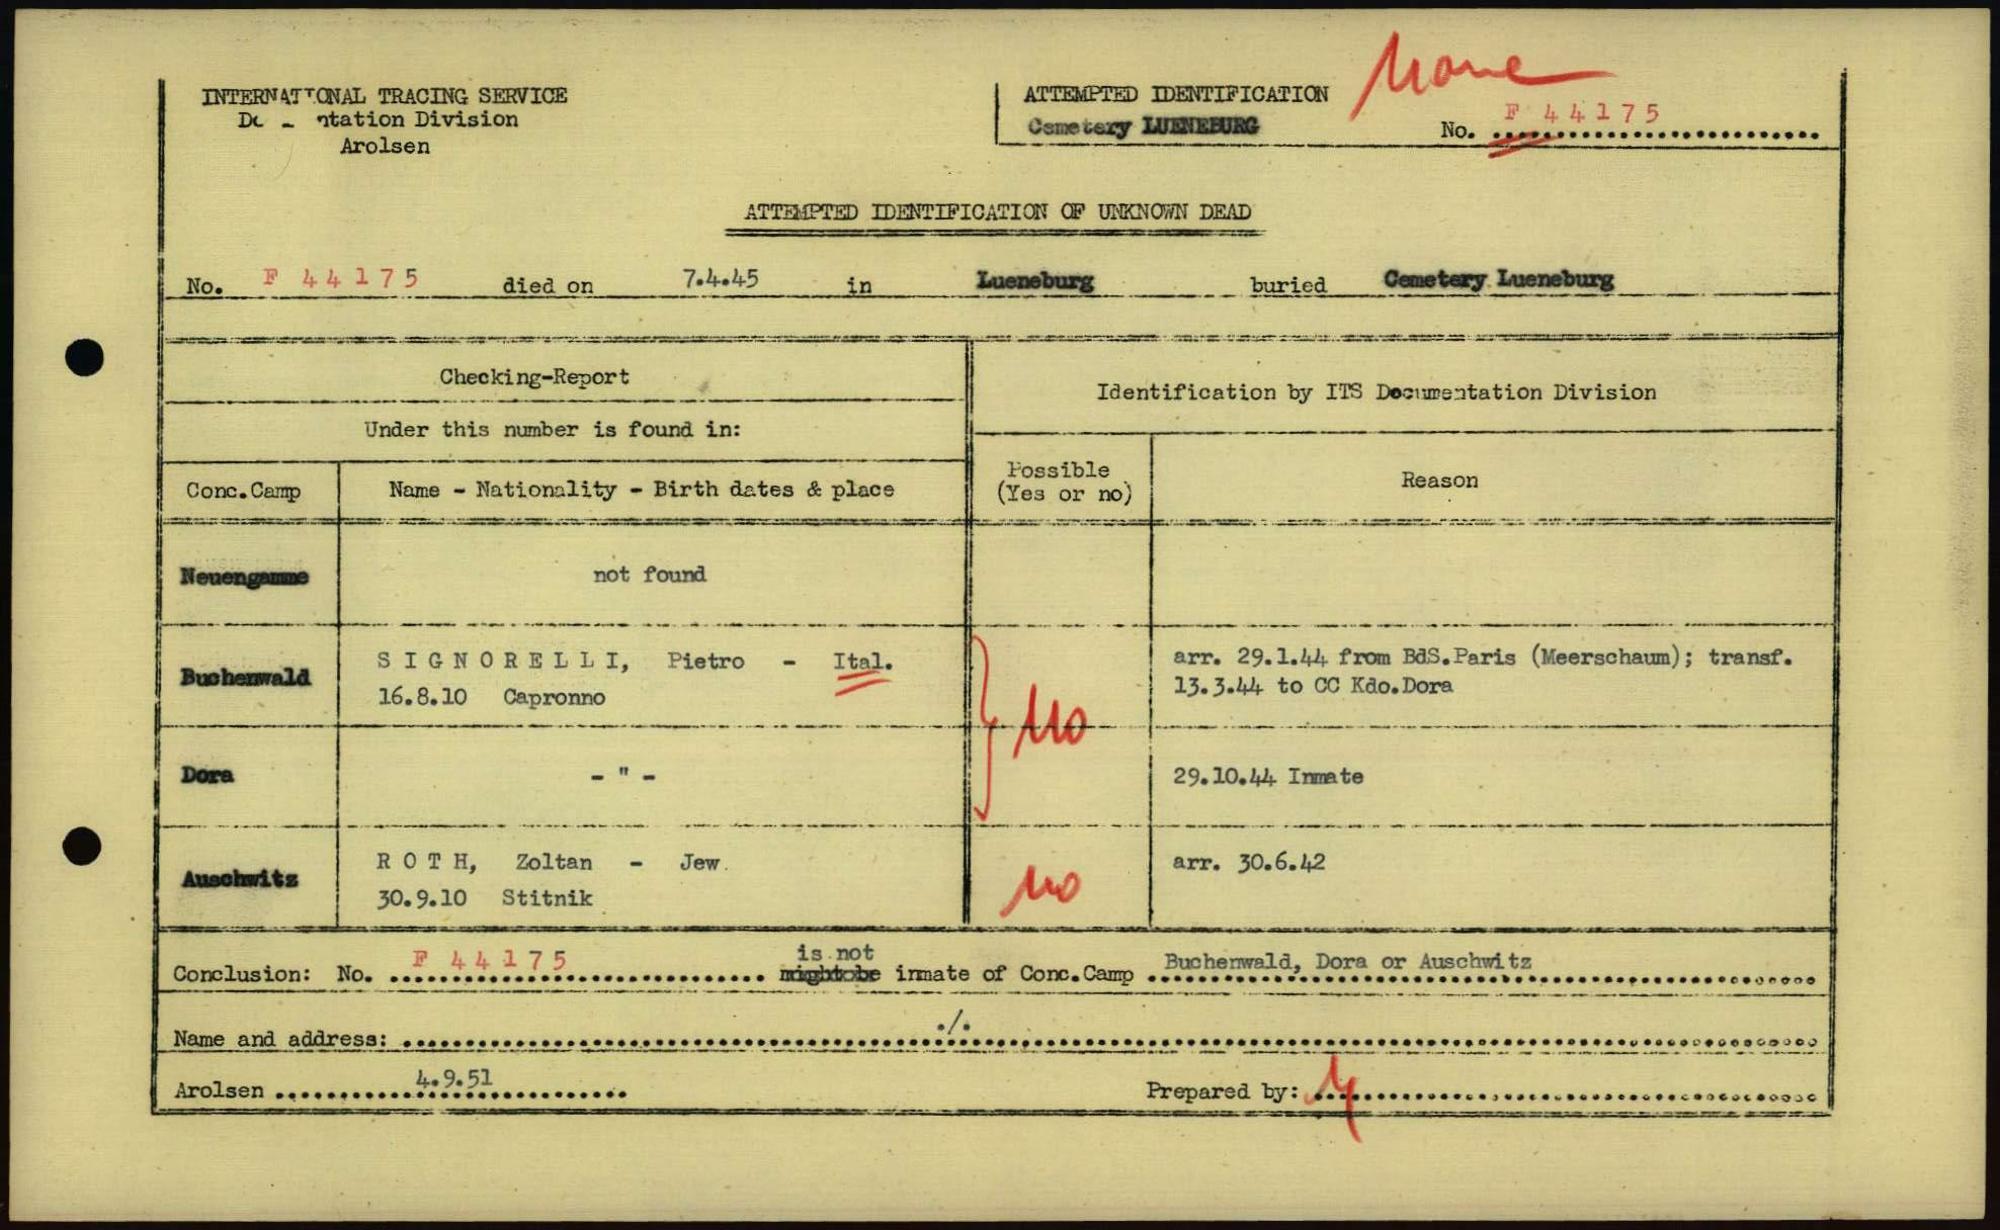 None
INTERNATIONAL TRACING SERVICE
ntation Division
Arolsen
ATTEMPTED IDENTIFICATION
Cemetery LUENEBURG
No. F 44175
ATTEMPTED IDENTIFICATION OF UNKNOWN DEAD
No. F 44175 died on 7.4.45 in Lueneburg buried Cemetery Lueneburg
Checking-Report
Under this number is found in:
Identification by ITS Documentation Division
Conc.Camp
Name - Nationality - Birth dates & place
Possible
(Yes or no)
Reason
Neuengamme
not found
Buchenwald
S I G N O R E L L I, Pietro - Ital.
16.8.10 Capronno
no
arr. 29.1.44 from BdS.Paris (Meerschaum); transf.
13.3.44 to CC Kdo.Dora
Dora
- " -
29.10.44 Inmate
Auschwitz
R O T H, Zoltan - Jew.
30.9.10 Stitnik
no
arr. 30.6.42
is not
Conclusion: No. F 44175 inmate of Conc.Camp Buchenwald, Dora or Auschwitz
Name and address: ./.
Arolsen 4.9.51
Prepared by: